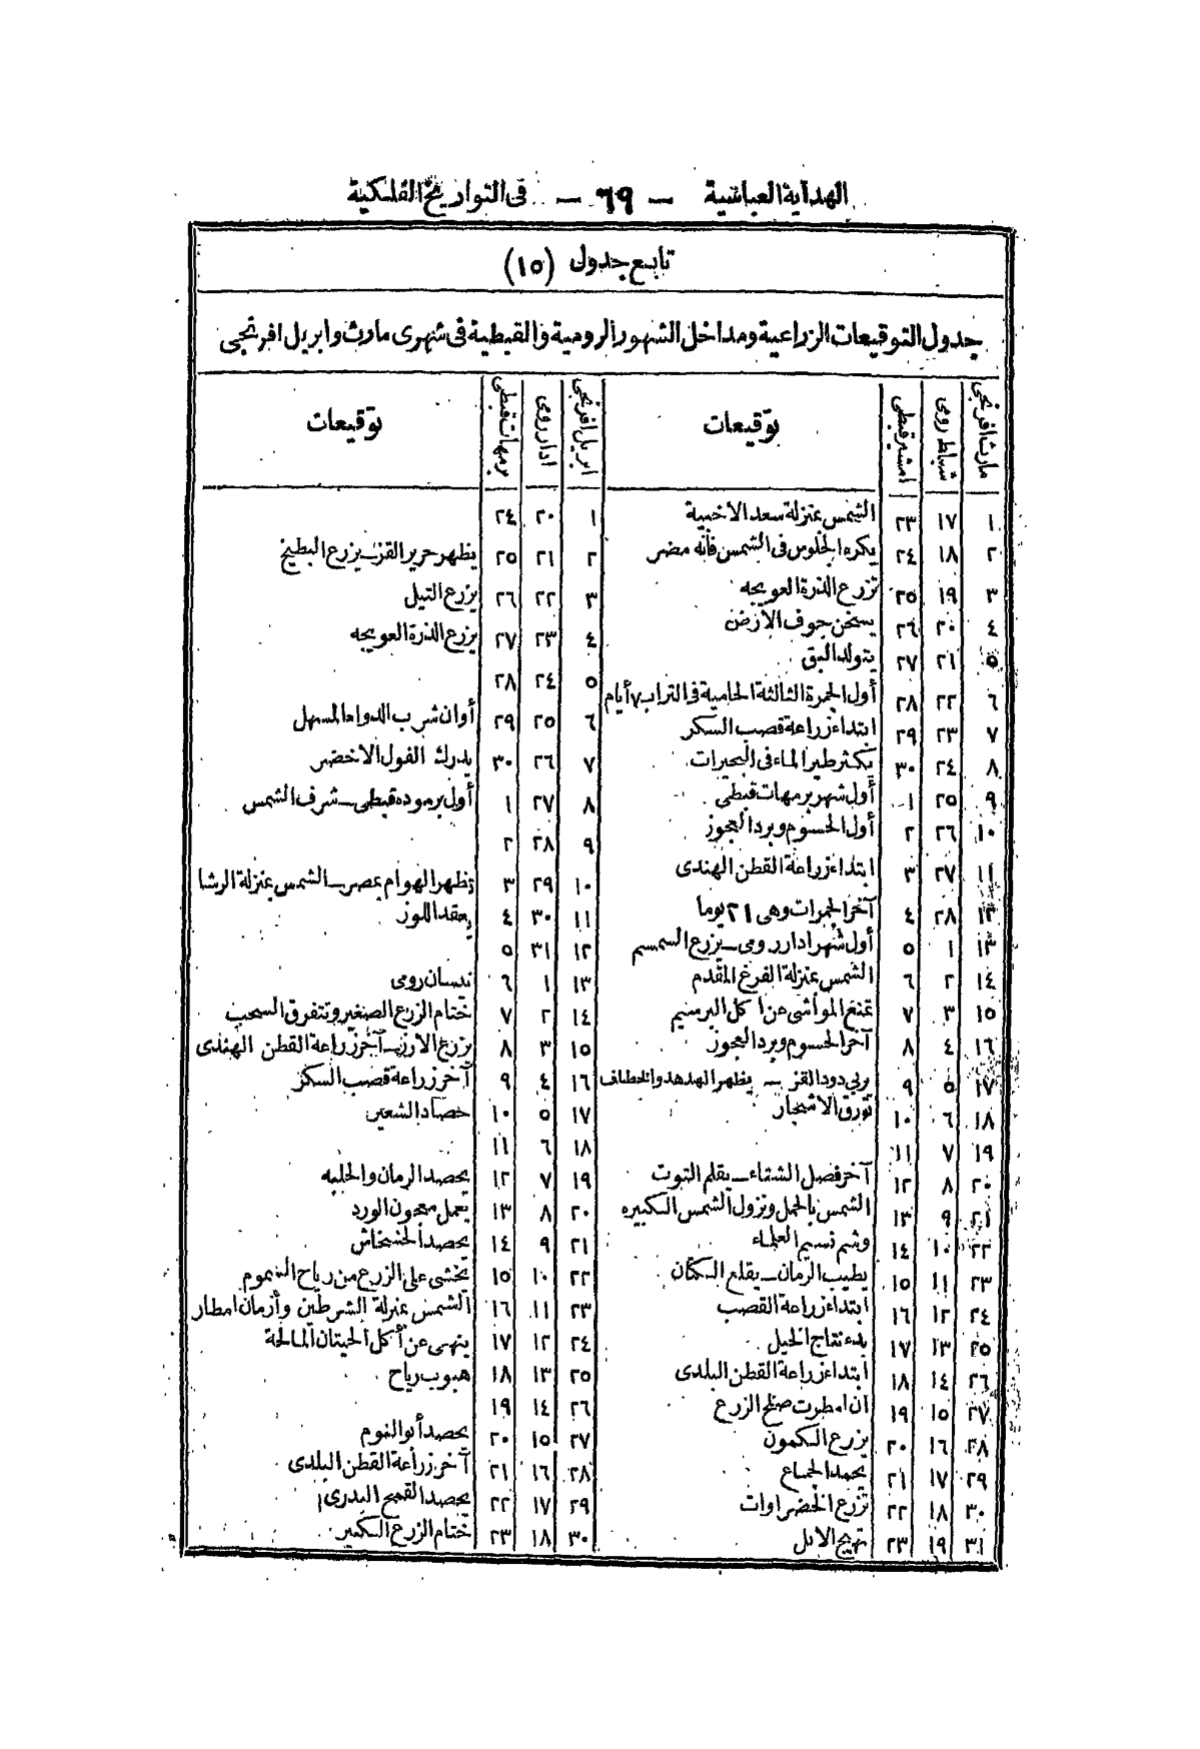 الهداية العباسية — ٦٩ — فى التواريخ الفلكية
تابع جدول (١٥)
جدول التوقيعات الزراعية ومداخل الشهور الرومية والقبطية فى شهرى مارث وابريل افرنجى
مارث افرنجى شباط رومى امشير قبطى توقيعات ابريل افرنجى ادار رومى برمهات قبطى توقيعات
١ ١٧ ٢٣ الشمس بمنزلة سعد الأخبية ١ ٢٠ ٢٤
٢ ١٨ ٢٤ يكره الجلوس فى الشمس فأنه مضر ٢ ٢١ ٢٥ يظهر حرير القز — يزرع البطيخ
٣ ١٩ ٢٥ تزرع الذرة العويجه ٣ ٢٢ ٢٦ يزرع التيل
٤ ٢٠ ٢٦ يسخن جوف الأرض ٤ ٢٣ ٢٧ يزرع الذرة العويجه
٥ ٢١ ٢٧ يتولد البق ٥ ٢٤ ٢٨
٦ ٢٢ ٢٨ أول الجمرة الثالثة الحامية فى التراب ٧ أيام ٦ ٢٥ ٢٩ أوان شرب الدواء المسهل
٧ ٢٣ ٢٩ ابتداء زراعة قصب السكر ٧ ٢٦ ٣٠ يدرك الفول الاخضر
٨ ٢٤ ٣٠ يكثر طير الماء فى البحيرات ٨ ٢٧ ١ أول برموده قبطى — شرف الشمس
٩ ٢٥ ١ أول شهر برمهات قبطى ٩ ٢٨ ٢
١٠ ٢٦ ٢ أول الحسوم وبرد العجوز ١٠ ٢٩ ٣ يظهر الهوام بمصر — الشمس بمنزلة الرشا
١١ ٢٧ ٣ ابتداء زراعة القطن الهندى ١١ ٣٠ ٤ يعقد اللوز
١٢ ٢٨ ٤ آخر الجمرات وهى ٢١ يوما ١٢ ٣١ ٥
١٣ ١ ٥ أول شهر ادار رومى — يزرع السمسم ١٣ ١ ٦ نيسان رومى
١٤ ٢ ٦ الشمس بمنزلة الفرغ المقدم ١٤ ٢ ٧ ختام الزرع الصغير وتتفرق السحب
١٥ ٣ ٧ تمنع المواشى عن اكل البرسيم ١٥ ٣ ٨ يزرع الارز — آخر زراعة القطن الهندى
١٦ ٤ ٨ آخر الحسوم وبرد العجوز ١٦ ٤ ٩ آخر زراعة قصب السكر
١٧ ٥ ٩ يربى دود القز — يظهر الهدهد والخطاف ١٧ ٥ ١٠ حصاد الشعير
١٨ ٦ ١٠ تورق الاشجار ١٨ ٦ ١١
١٩ ٧ ١١ ١٩ ٧ ١٢ يحصد الرمان والحلبه
٢٠ ٨ ١٢ آخر فصل الشتاء — يقلم التوت ٢٠ ٨ ١٣ يعمل معجون الورد
٢١ ٩ ١٣ الشمس بالحمل ونزول الشمس الكبيره ٢١ ٩ ١٤ يحصد الخشخاش
٢٢ ١٠ ١٤ وشم نسيم العلماء ٢٢ ١٠ ١٥ يخشى على الزرع من رياح السموم
٢٣ ١١ ١٥ يطيب الرمان — يقلع الكتان ٢٣ ١١ ١٦ الشمس بمنزلة الشرطين وأزمان امطار
٢٤ ١٢ ١٦ ابتداء زراعة القصب ٢٤ ١٢ ١٧ ينهى عن أكل الحيتان المالحة
٢٥ ١٣ ١٧ بدء نتاج الخيل ٢٥ ١٣ ١٨ هبوب رياح
٢٦ ١٤ ١٨ ابتداء زراعة القطن البلدى ٢٦ ١٤ ١٩
٢٧ ١٥ ١٩ ان امطرت صلح الزرع ٢٧ ١٥ ٢٠ يحصد أبو النوم
٢٨ ١٦ ٢٠ يزرع الكمون ٢٨ ١٦ ٢١ آخر زراعة القطن البلدى
٢٩ ١٧ ٢١ يحمد الجماع ٢٩ ١٧ ٢٢ يحصد القمح البدرى
٣٠ ١٨ ٢٢ تزرع الخضراوات ٣٠ ١٨ ٢٣ ختام الزرع الكبير
٣١ ١٩ ٢٣ تهيج الابل